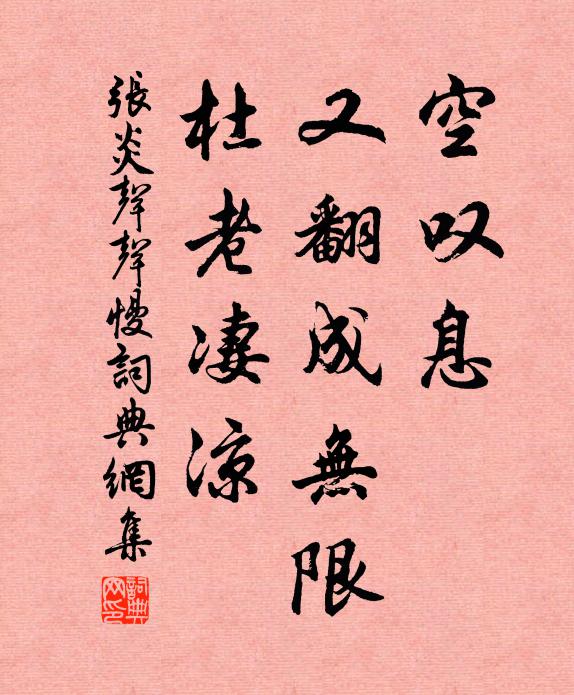 空叹息
又翻成無限
杜老凄涼
張炎聲聲慢詞典網集
詞典網印